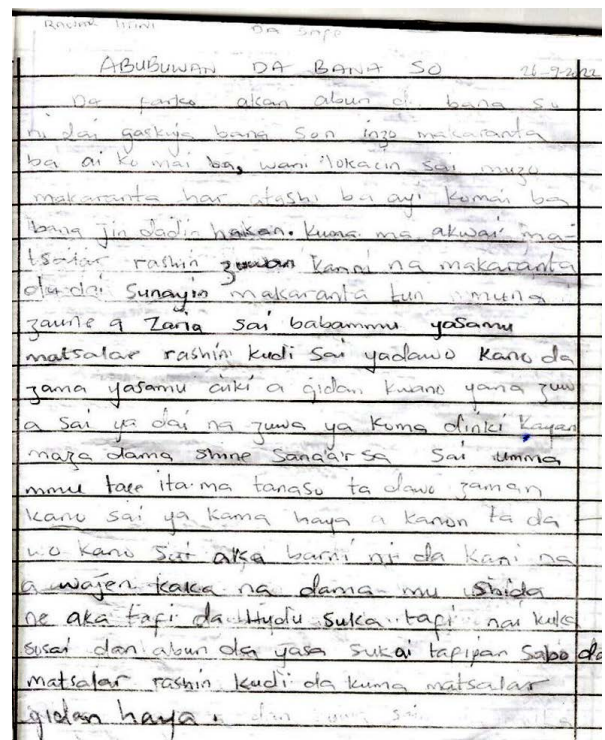 DA SAFE
ABUBUWAN DA BANA SO 26-9-2022
Da farko akan abun da bana so
ni dai gaskiya bana son inzo makaranta
ba ai ko mai ba, wani lokacin sai muzo
makaranta har atashi ba ayi komai ba
bana jin dadin hakan. Kuma ma akwai mai
tsalar rashin zuwan kanni na makaranta
du dai sunayin makaranta tun muna
zaune a Zaria sai babammu yasamu
matsalar rashin kudi sai yadawo kano da
zama yasamu aiki a gidan kwano yana zuw
a sai ya dai na zuwa ya koma dinki kayan
maza dama shine sana'ar sa sai umma
mmu tace ita ma tanaso ta dawo zaman
kano sai ya kama haya a kanon ta da
wo kano sai aka barni ni da kani na
a wajen kaka na dama mu shida
ne aka tafi da Hudu suka tafi nai kuka
sosai dan abun da yasa sukai tafiyan sabo da
matsalar rashin kudi da kuma matsalar
gidan haya.